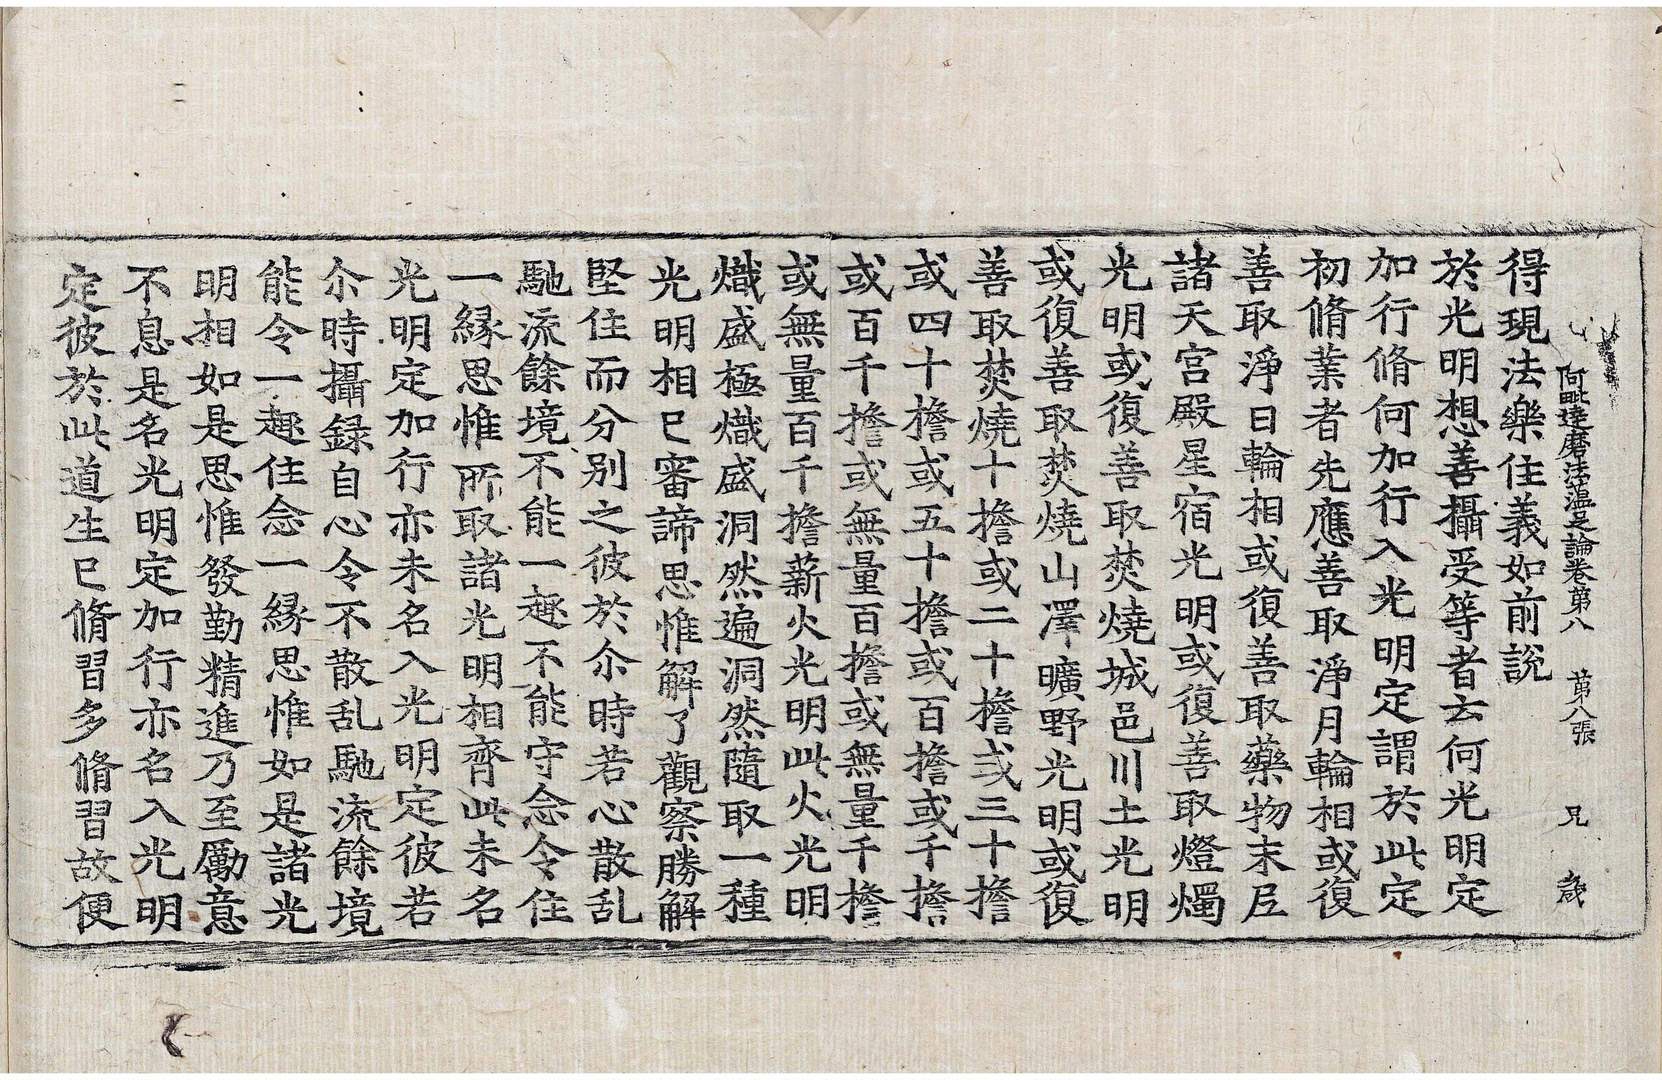 阿毗達磨法蕴足論卷第八 第八張 兄 歲
得現法樂住義如前說
於光明想善攝受等者云何光明定
加行脩何加行入光明定謂於此定
初脩業者先應善取淨月輪相或復
善取淨日輪相或復善取藥物末尼
諸天宮殿星宿光明或復善取燈燭
光明或復善取焚燒城邑川土光明
或復善取焚燒山澤曠野光明或復
善取焚燒十擔或二十擔或三十擔
或四十擔或五十擔或百擔或千擔
或百千擔或無量百擔或無量千擔
或無量百千擔薪火光明此火光明
熾盛極熾盛洞然遍洞然隨取一種
光明相已審諦思惟解了觀察勝解
堅住而分別之彼於尒時若心散乱
馳流餘境不能一趣不能守念令住
一緣思惟所取諸光明相齊此未名
光明定加行亦未名入光明定彼若
尒時攝録自心令不散乱馳流餘境
能令一趣住念一緣思惟如是諸光
明相如是思惟發勤精進乃至勵意
不息是名光明定加行亦名入光明
定彼於此道生已脩習多脩習故便